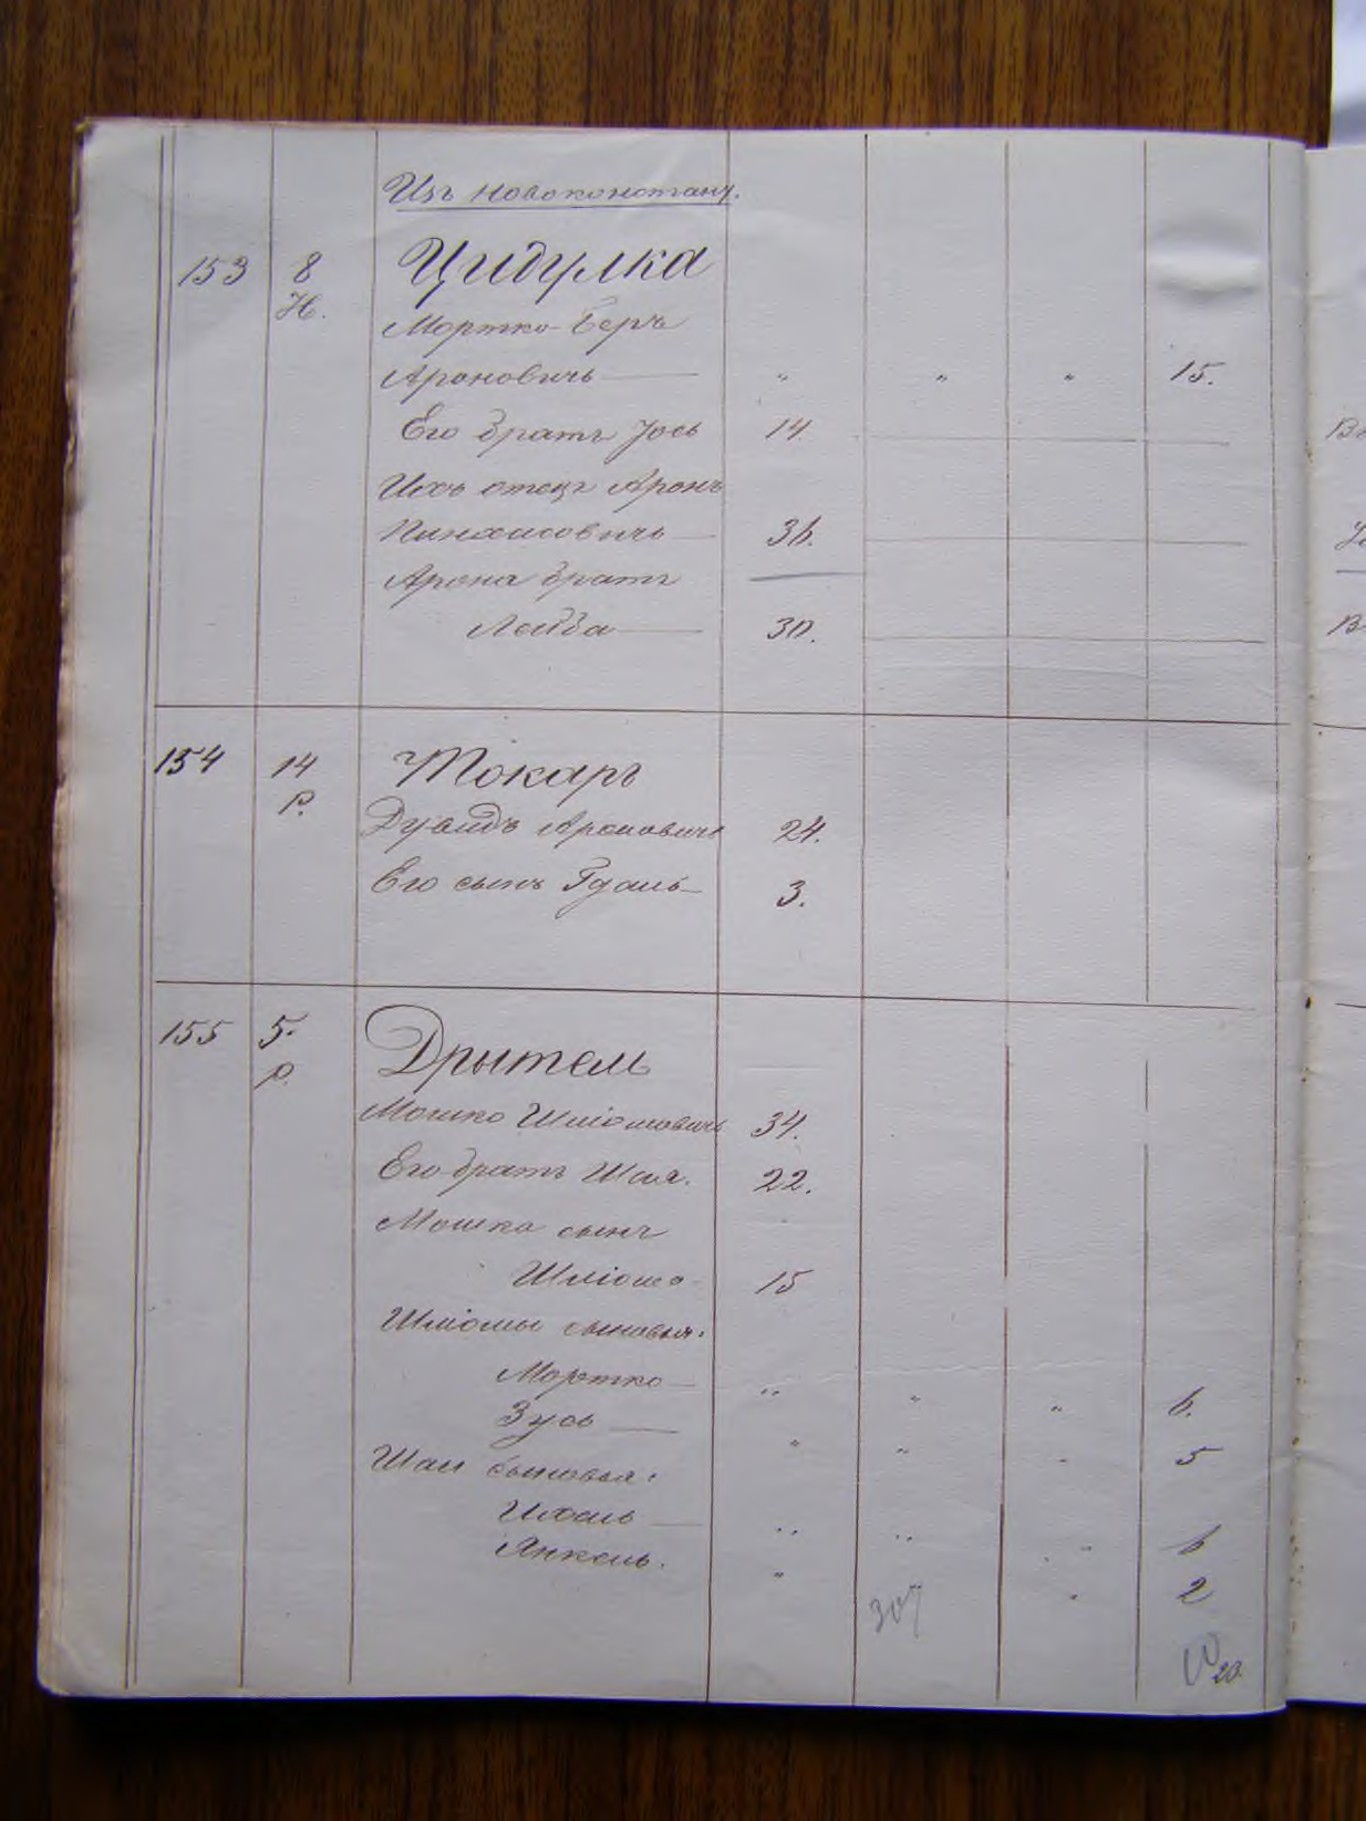 Изъ Новоконстант.
153 8 Цидулка
Н.
Мортко-Беръ
Ароновичъ — " " " 15.
Его братъ Іось 14.
Ихъ отецъ Аронъ
Пинхасовичъ — 36.
Арона братъ
Лейба — 30.
154 14 Токарь
р.
Дувидъ Ароновичъ 24.
Его сынъ Гдаль — 3.
155 5. Дрытель
р.
Мошко Шліомовичъ 34.
Его братъ Шая. 22.
Мошка сынъ
Шліома 15
Шліомы сыновья:
Мортко — " " " 6.
Зусь — " " " 5
Шаи сыновья:
Ихель — " " " 6
Янкель. " " " 2
307
20.